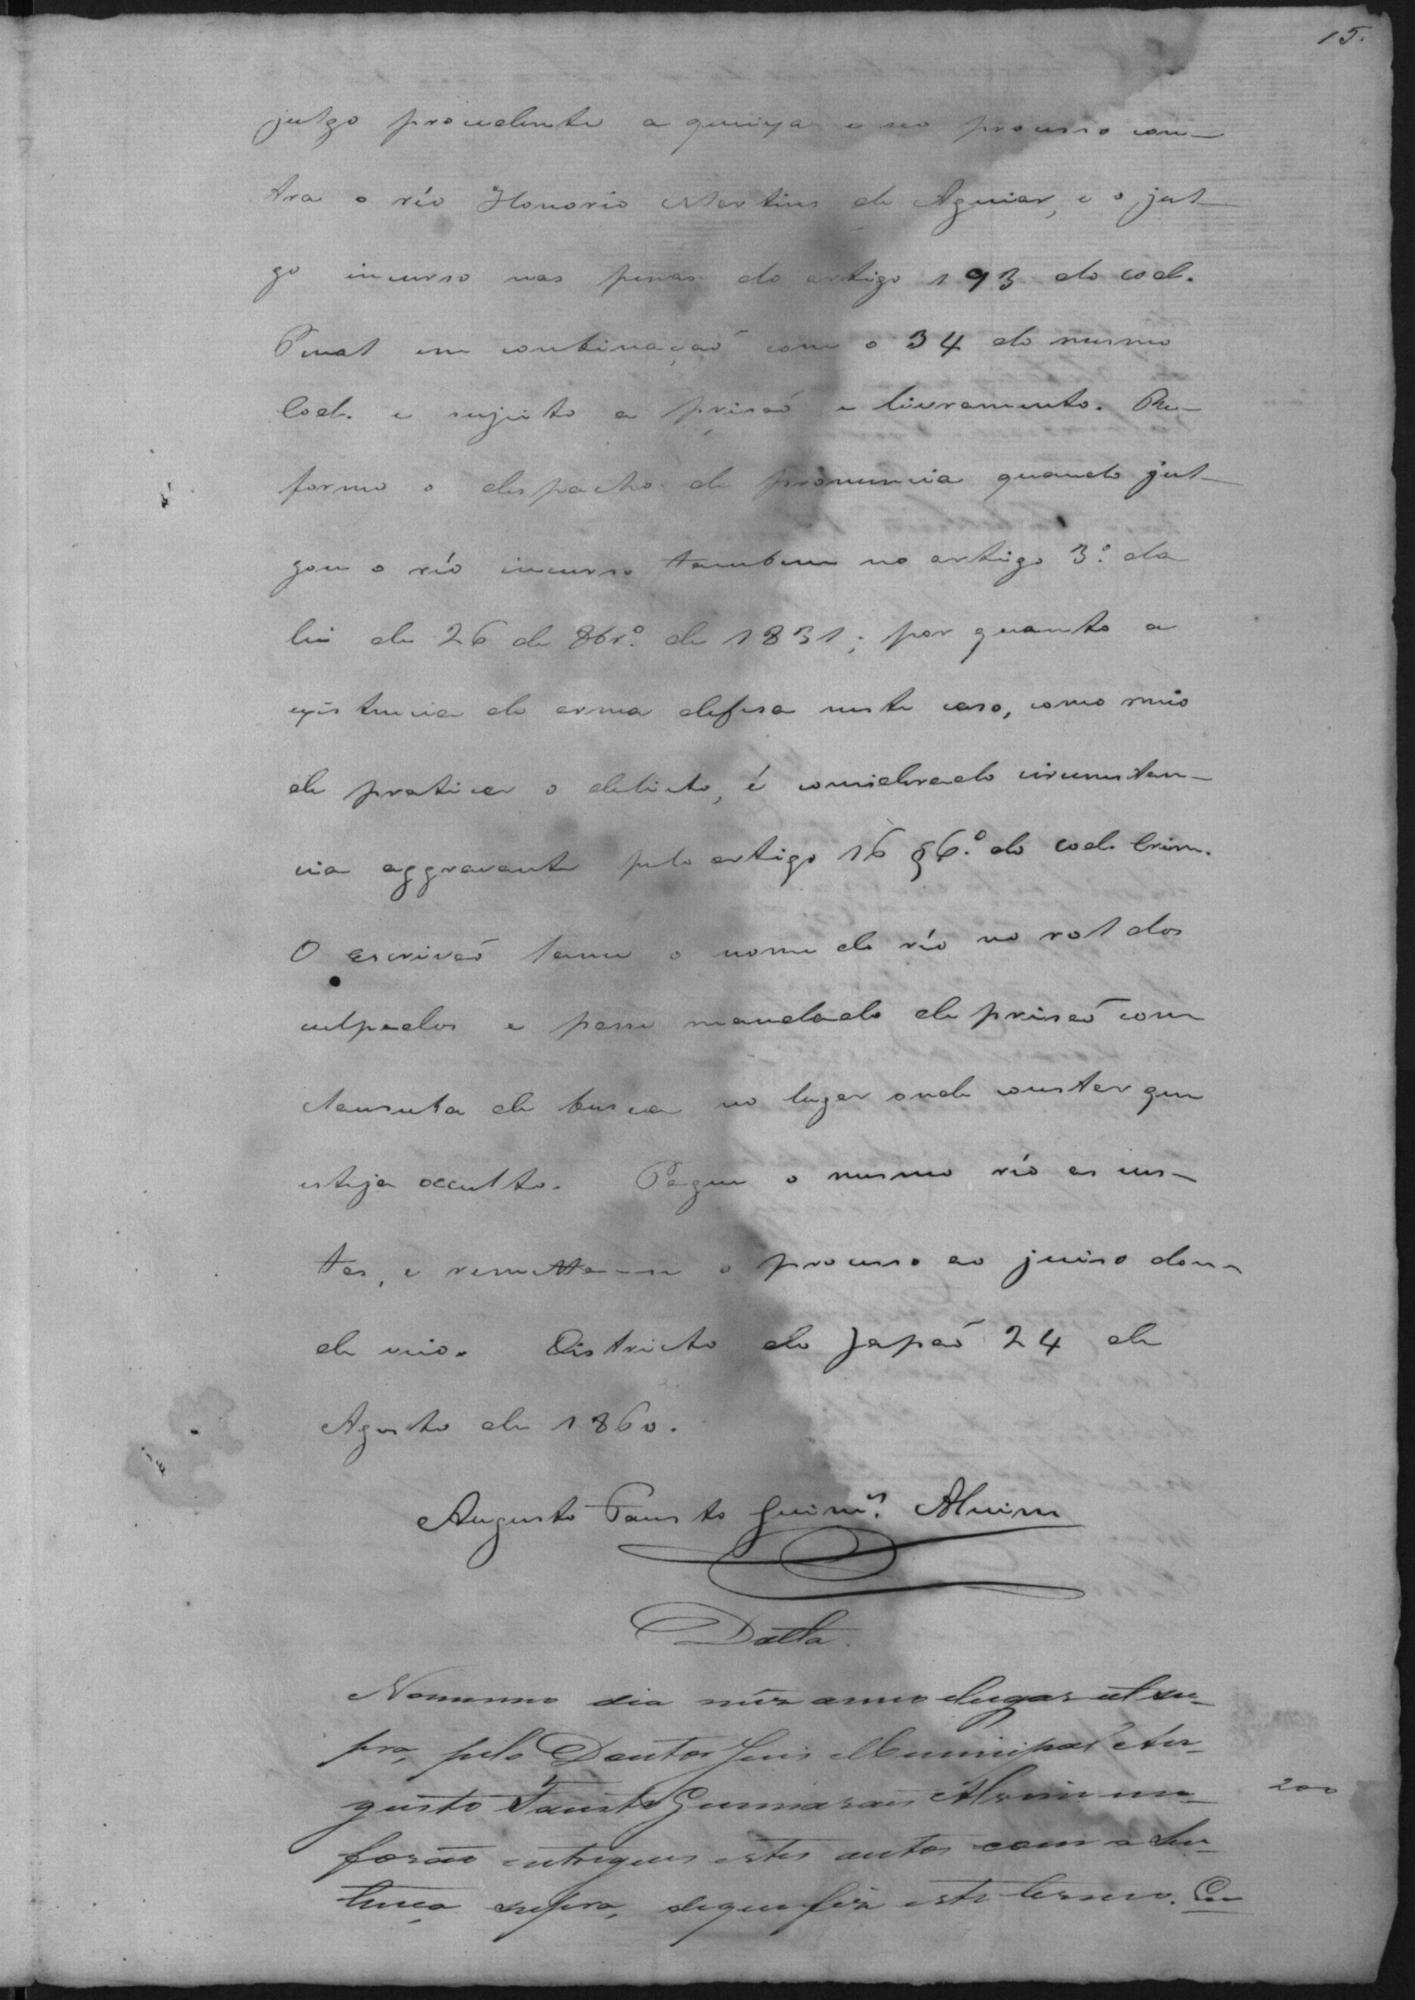 15.
julgo procedente a queixa e seo processo con-
tra o réo Honorio Martins de Aguiar, e o jul-
go incurso nas penas do artigo 193 do cod.
Penal em combinaçaõ com o 34 do mesmo
Cod. e sujeito a prisaõ e livramento. Re-
formo o despacho de pronuncia quando jul-
gou o réo incurso tambem no artigo 3.º da
lei de 26 de 8br.º de 1831; por quanto a
existencia de arma defesa neste caso, como meio
de praticar o delicto, é considerado circunstan-
cia aggravante pelo artigo 16 §6.º do cod. Crim.
O escrivaõ lance o nome do réo no rol dos
culpados e passe mandado de prisaõ com
clausula de busca no lugar onde constar que
esteja occulto. Pague o mesmo réo as cus-
tas, e remetta-se o processo ao juiso don-
de veio. Districto do Japaõ 24 de
Agosto de 1860.
Augusto Fausto Guimes. Alvim
Datta.
No mesmo dia mez anno e lugar ut su-
pra, pelo Doutor Juis Municipal Au-
gusto Fausto Guimaraes Alvim me
200
foraõ entregues estes autos com a Sen-
tença supra, de que fiz este termo. Eu